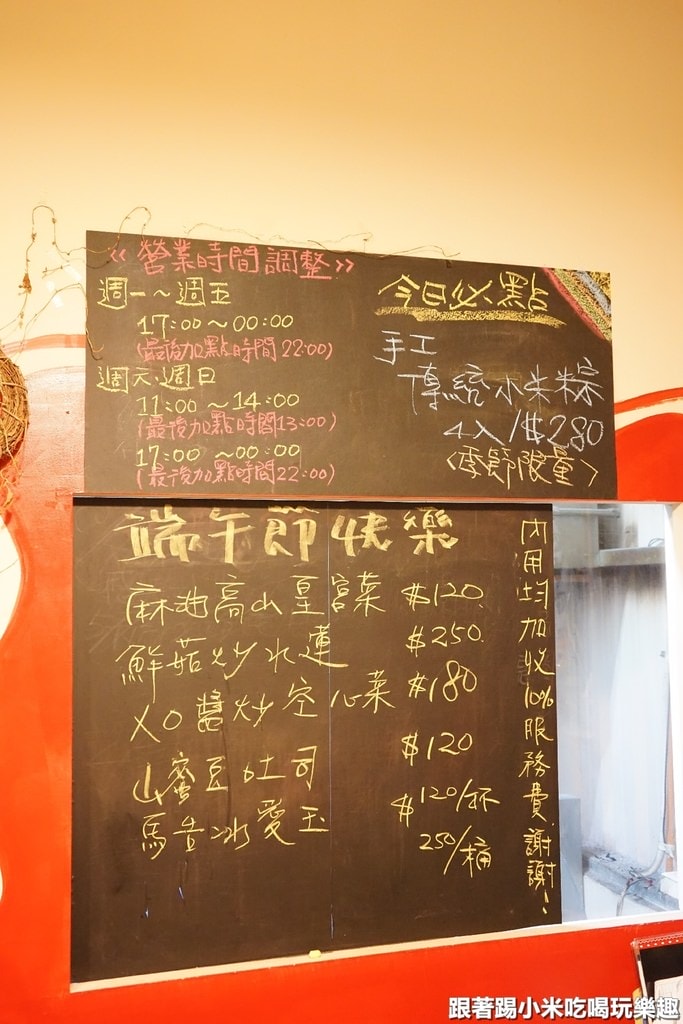 <<營業時間調整>>
週一~週五
17:00~00:00
(最後加點時間22:00)
週六.週日
11:00~14:00
(最後加點時間13:00)
17:00~00:00
(最後加點時間22:00)
今日必點
手工
傳統小米粽
4入/$280
<季節限量>
端午節快樂
麻油高山皇宮菜 $120.
鮮菇炒水蓮 $250.
XO醬炒空心菜 $180
山蜜豆吐司 $120
馬告冰愛玉 $120/杯
250/桶
內用均加收10%服務費.謝謝!
跟著踢小米吃喝玩樂趣